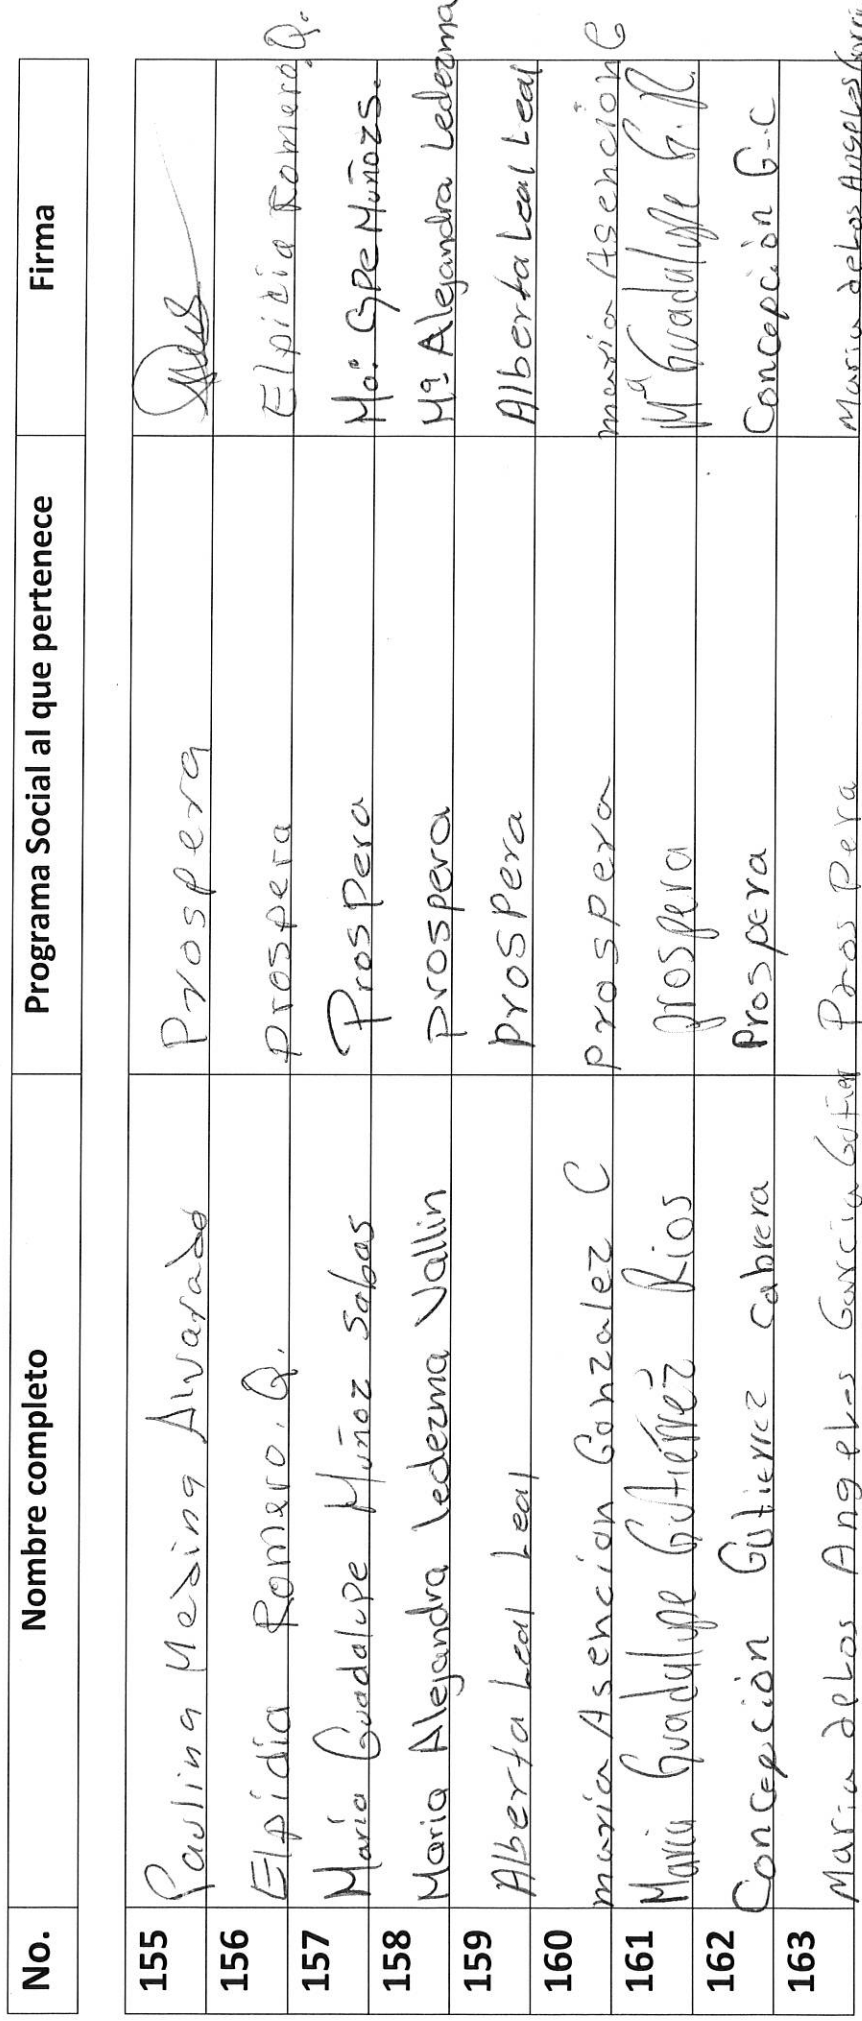 No. Nombre completo Programa Social al que pertenece Firma
155 Paulina Medina Alvarado Prospera
156 Elpidia Romero. Q. prospera Elpidia Romero Q.
157 Maria Guadalupe Muñoz Sabas ProsPera Ma. Gpe Muñoz S.
158 Maria Alejandra Ledezma Vallin prospera Mª Alejandra Ledezma
159 Alberta Leal Leal ProsPera Alberta Leal Leal
160 maria Asencion Gonzalez C prospera maria Asencion G
161 Maria Guadalupe Gutiérrez Rios prospera Mª Guadalupe G. R.
162 Concepcion Gutierrez Cabrera Prospera Concepcion G-C
163 Maria deLos Angeles Garcia ProsPera Maria deLos Angeles